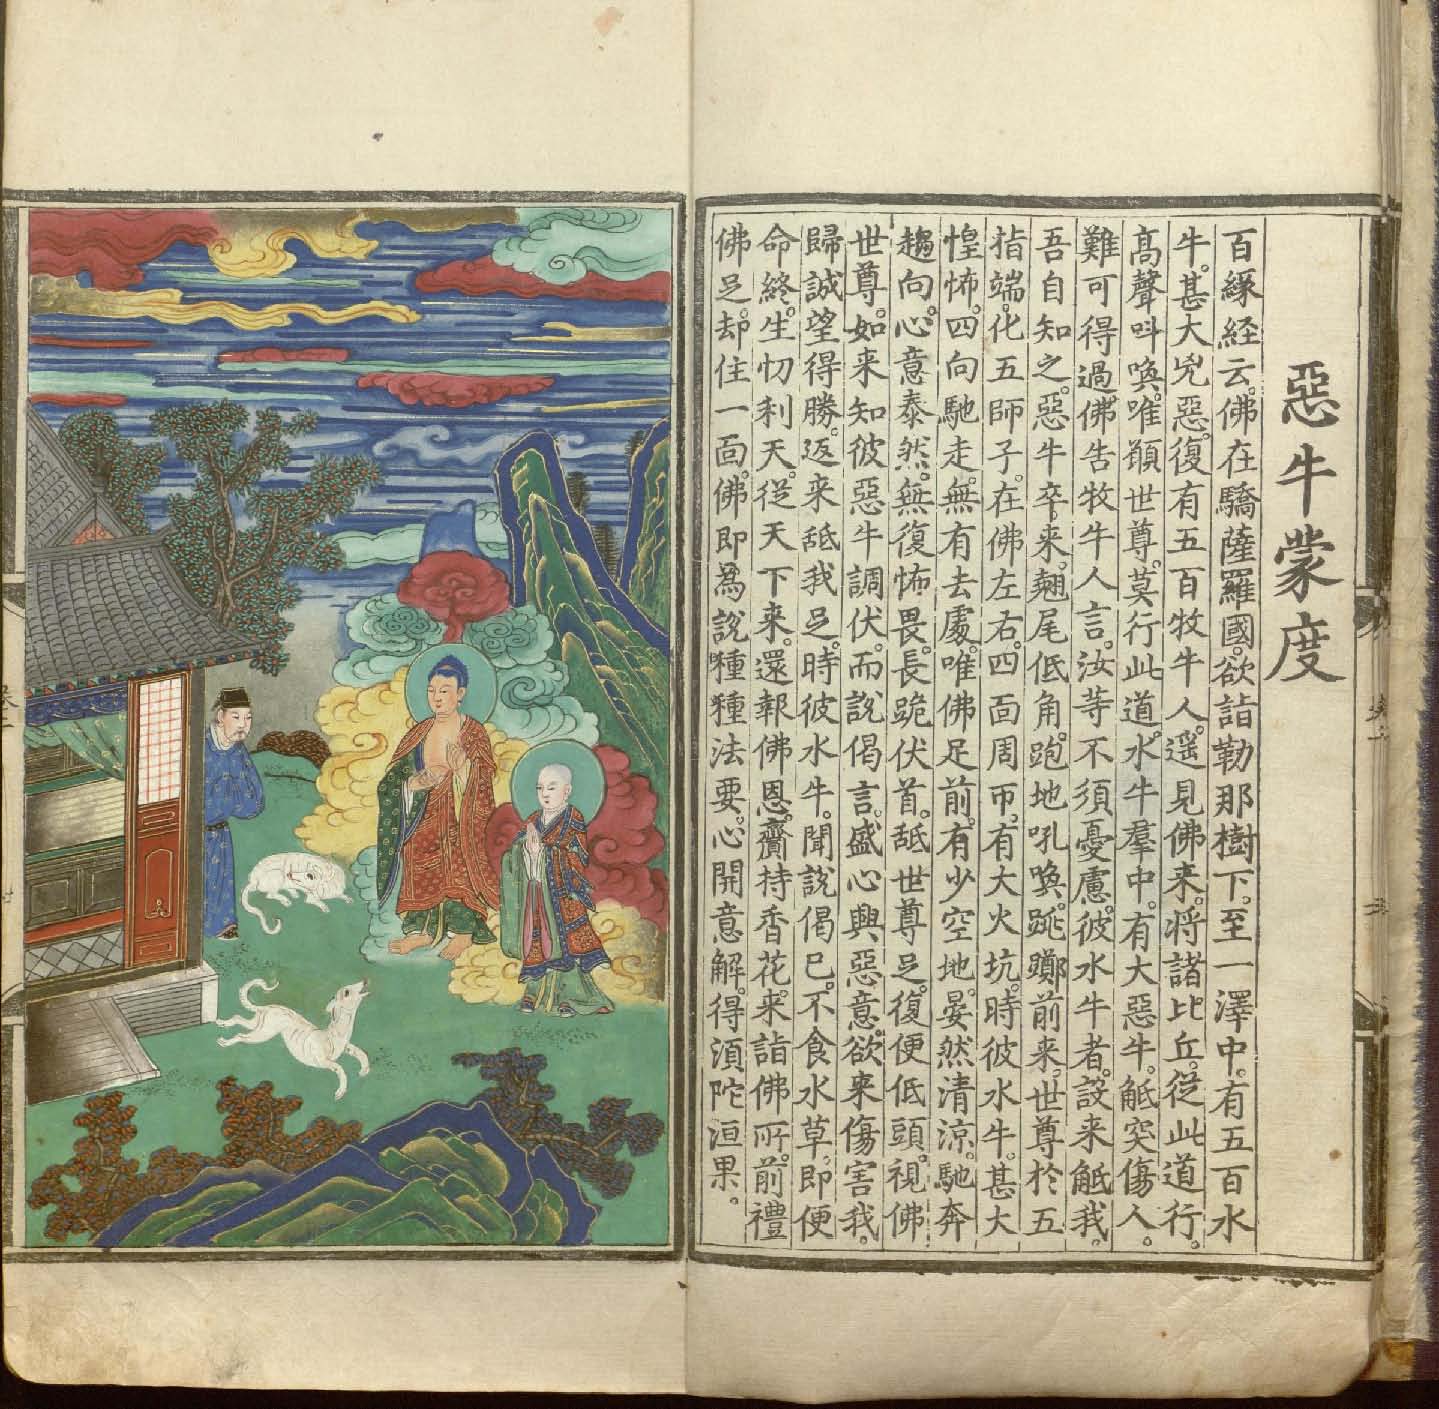 惡牛蒙度
百緣经云。佛在驕薩羅國。欲詣勒那樹下。至一澤中。有五百水
牛。甚大兇惡。復有五百牧牛人。遥見佛來。将諸比丘。從此道行。
髙聲呌喚。唯願世尊。莫行此道。水牛羣中。有大惡牛。觝突傷人。
難可得過。佛告牧牛人言。汝等不須憂慮。彼水牛者。設来觝我。
吾自知之。惡牛卒来。翹尾低角。跑地吼喚。跳躑前来。世尊扵五
指端。化五師子。在佛左右。四面周帀。有大火坑。時彼水牛。甚大
惶怖。四向馳走。無有去處。唯佛足前。有少空地。晏然清凉。馳奔
趨向。心意泰然。無復怖畏。長跪伏首。舐世尊足。復便低頭。視佛
世尊。如来知彼惡牛調伏。而説偈言。盛心興惡意。欲来傷害我。
歸誠望得勝。返来舐我足。時彼水牛。聞説偈已。不食水草。即便
命終。生忉利天。從天下来。還報佛恩。齎持香花。来詣佛所。前禮
佛足。却住一面。佛即為說種種法要。心開意解。得湏陀洹果。